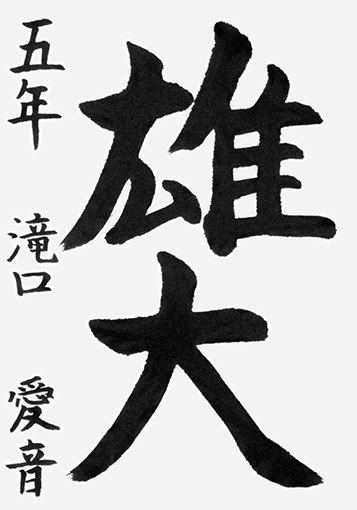 雄大
五年 滝口 愛音